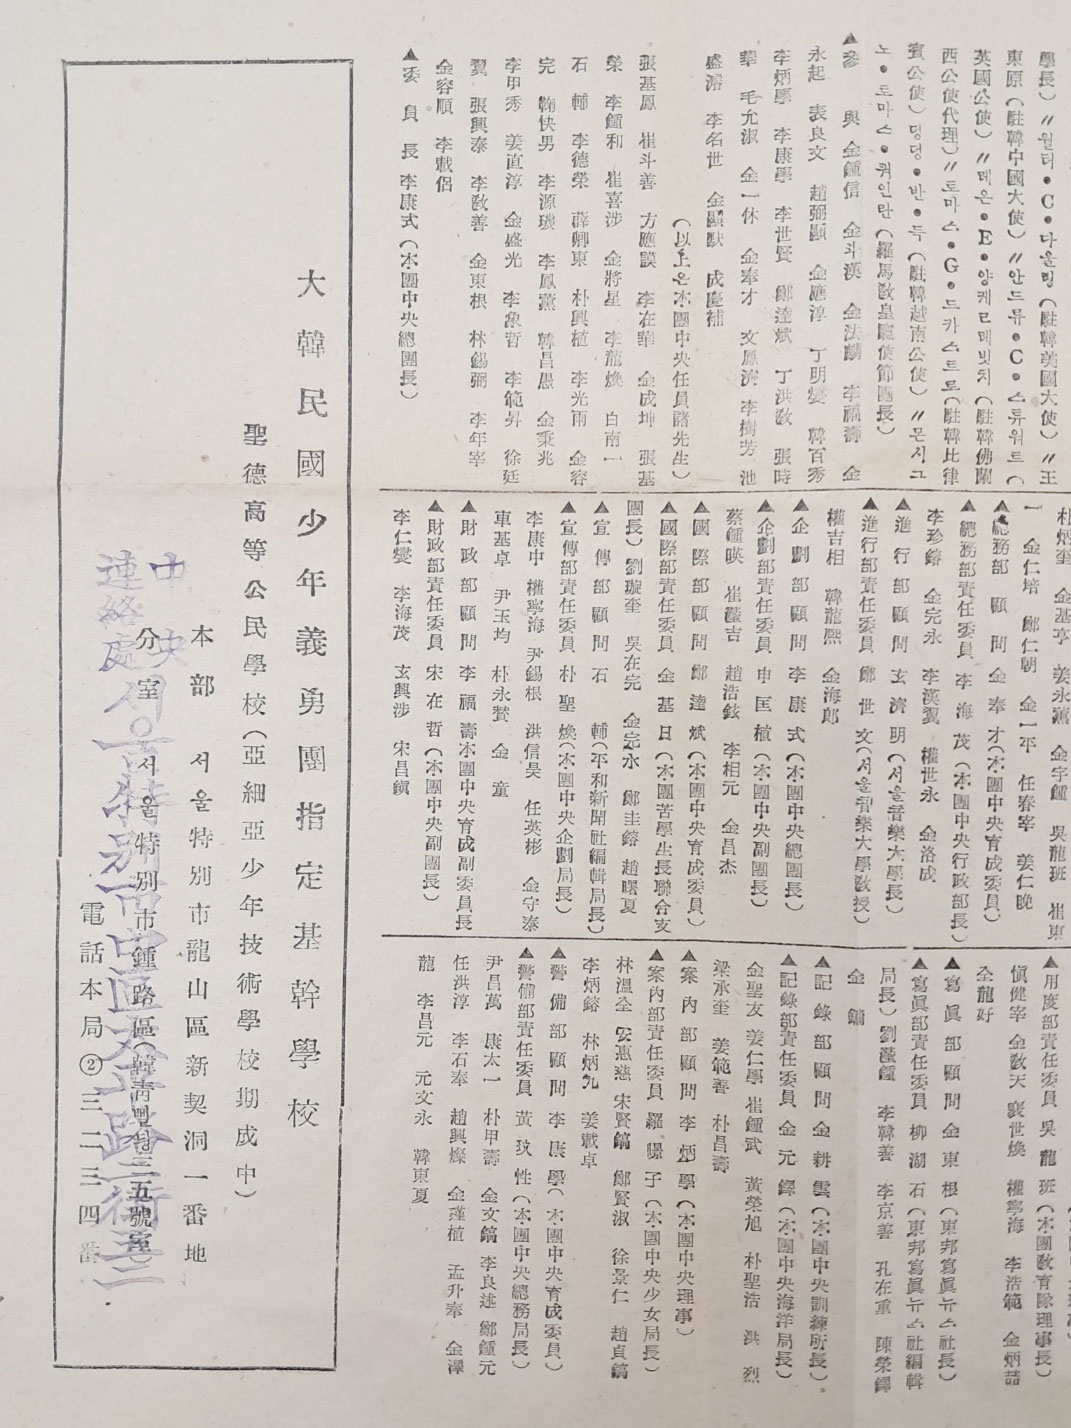 學長)〃월터•C•다우링(駐韓美國大使)〃王
東原(駐韓中國大使)〃안드류•C•스튜워트(
英國公使)〃메온•E•앙케르메빗치(駐韓佛蘭
西公使代理)〃토마스•G•드카스트로(駐韓比律
賓公使)덩덩•반•득(駐韓越南公使)〃몬시그
노•토마스•퀴인란(羅馬敎皇廳使節團長)
▲參與 金鍾信 金斗漢 金法麟 李福壽 金
永起 表良文 趙弼顯 金應淳 丁明燮 韓百秀
李炳學 李康學 李世賢 鄭達斌 丁洪敎 張時
華 毛允淑 金一休 金奉才 文鳳濟 李樹芳 池
盛濬 李名世 金顯默 成慶補
(以上은本團中央任員諸先生)
張基鳳 崔斗善 方應謨 李在華 金成坤 張基
榮 李鍾和 崔喜涉 金將星 李龍煥 白南一
石輔 李德榮 薛卿東 朴興植 李光雨 金容
完 鞠快男 李源璣 李鳳薰 韓昌愚 金秉兆
李甲秀 姜直淳 金盛光 李象哲 李範昇 徐廷
翼 張興泰 李敎善 金東根 林錫弼 李年宰
金容順 李載侶
▲委員長 李康式(本團中央總團長)
朴炳奎 金基亨 姜永薰 金宇鍾 吳龍班 崔東
一 金仁培 鄭仁朝 金一平 任春宰 姜仁晚
▲總務部顧問 金奉才(本團中央育成委員)
▲總務部責任委員 李海茂(本團中央行政部長)
李珍鎔 金完永 李漢翼 權世永 金洛成
▲進行部顧問 玄濟明(서울音樂大學長)
▲進行部責任委員 鄭世文(서울音樂大學敎授)
權吉相 韓龍熙 金海郎
▲企劃部顧問 李康式(本團中央總團長)
▲企劃部責任委員 申匡植(本團中央副團長)
蔡鍾暎 崔瀅吉 趙浩鉉 李相元 金昌杰
▲國際部顧問 鄭達斌(本團中央育成委員)
▲國際部責任委員 金基日(本團苦學生長聯合支
團長)劉璇奎 吳在完 金完永 鄭圭鎔 趙曙夏
▲宣傳部顧問 石輔(平和新聞社編輯局長)
▲宣傳部責任委員 朴聖煥(本團中央企劃局長)
李康中 權寧海 尹錫根 洪信昊 任英彬 金守泰
車基卓 尹玉均 朴永贊 金童
▲財政部顧問 李福壽本團中央育成副委員長
▲財政部責任委員 宋在哲(本團中央副團長)
李仁燮 李海茂 玄興涉 宋昌鎭
▲用度部責任委員 吳龍班(本團敎育隊理事長)
愼健宰 金敎天 裵世煥 權寧海 李浩範 金炳喆
全龍好
▲寫眞部顧問 金東根(東邦寫眞뉴스社長)
▲寫眞部責任委員 柳湖石(東邦寫眞뉴스社編輯
局長)劉瀅鍾 李韓善 李京善 孔在重 陳榮鐸
金鏞
▲記錄部顧問 金耕雲(本團中央訓練所長)
▲記錄部責任委員 金元鐸(本團中央海洋局長)
金聖友 姜仁學 崔鍾武 黃榮旭 朴聖浩 洪烈
梁承奎 姜範善 朴昌壽
▲案內部顧問 李炳學(本團中央理事)
▲案內部責任委員 羅暻子(本團中央少女局長)
林溫全 安惠慈 宋賢鎬 鄭賢淑 徐景仁 趙貞鎬
李炳鎔 林炳九 姜載卓
▲警備部顧問 李康學(本團中央育成委員)
▲警備部責任委員 黃玟性(本團中央總務局長)
尹昌萬 康太一 朴甲壽 金文鎬 李良述 鄭鍾元
任洪淳 李石奉 趙興燦 金瑾植 孟升奉 金澤
龍 李昌元 元文永 韓東夏
大韓民國少年義勇團指定基幹學校
聖德高等公民學校(亞細亞少年技術學校期成中)
本部 서울特別市龍山區新契洞一番地
分室 서울特別市鍾路區(韓靑빌딩三五號室)
電話本局②三二三四番
中央
連絡處 서울特別市中區太平路一街三一